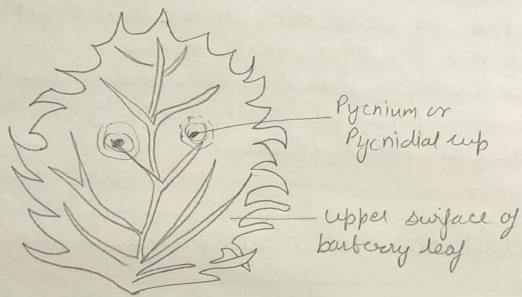 Pycnium or
Pycnidial cup
upper surface of
barberry leaf